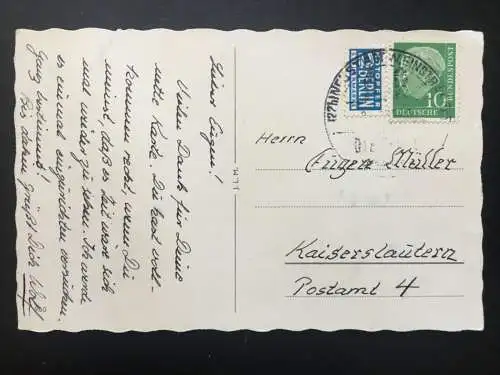 Lieber Eugen!
Vielen Dank für Deine
nette Karte. Du hast voll-
kommen recht, wenn Du
meinst, daß es Zeit wäre sich
mal wieder zu sehen. Ich werde
es einmal einzurichten versuchen.
Ganz bestimmt!
Bis dahin grüßt Dich Wolf
J.L.M.
NOTOPFER
BERLIN
10
DEUTSCHE
BUNDESPOST
(22b)
Herrn
Eugen Müller
Kaiserslautern
Postamt 4